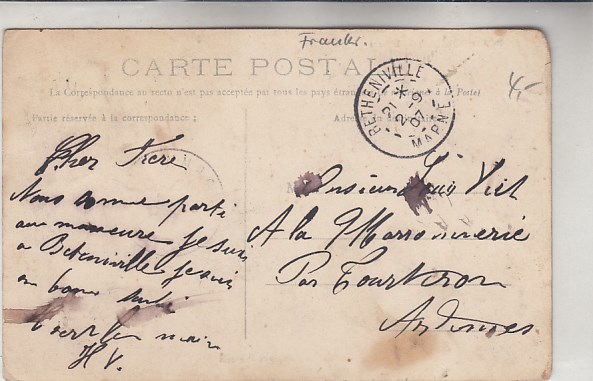 Frankr.
4,-
CARTE POSTALE
La Correspondance au recto n'est pas acceptée par tous les pays étrangers à la Poste)
Partie réservée à la correspondance ;
Adresse
BETHENIVILLE
21 * 2-9 07
MARNE
Cher Frere
Nous somme parti
au maneuvre Je suis
a Beteniville Je suis
en bonne santé
H V.
Monsieur Louis Viet
A la Marronnerié
Par Tourteron
Ardennes